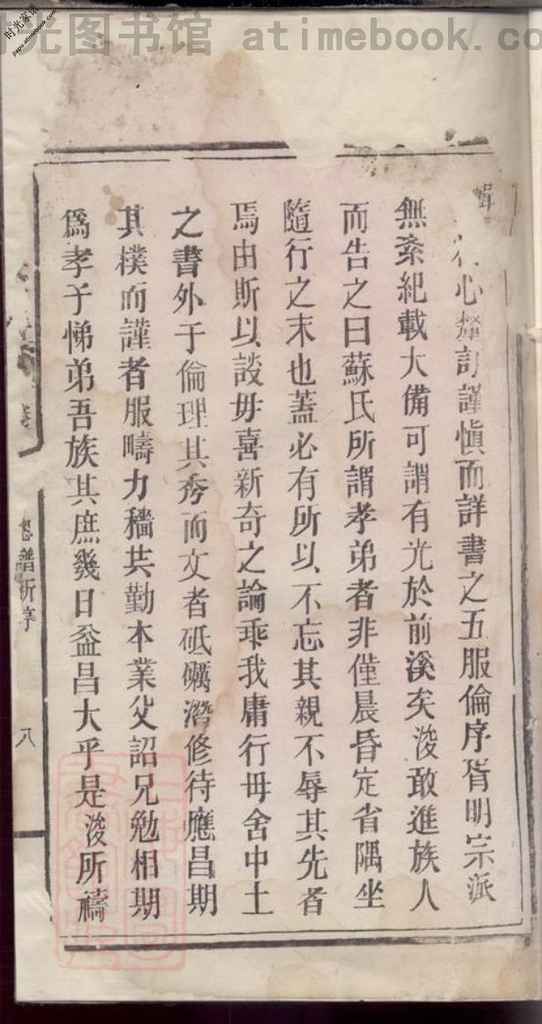 时光图书馆 atimebook.com
心釐訂謹慎而詳書之五服倫序胥明宗派
無紊紀載大備可謂有光於前溪矣浚敢進族人
而告之曰蘇氏所謂孝弟者非僅晨昏定省隅坐
隨行之末也蓋必有所以不忘其親不辱其先者
焉由斯以談毋喜新奇之論乖我庸行毋舍中土
之書外于倫理其秀而文者砥礪潛修待應昌期
其樸而謹者服疇力穡共勤本業父詔兄勉相期
為孝子悌弟吾族其庶幾日益昌大乎是浚所禱
譜
八